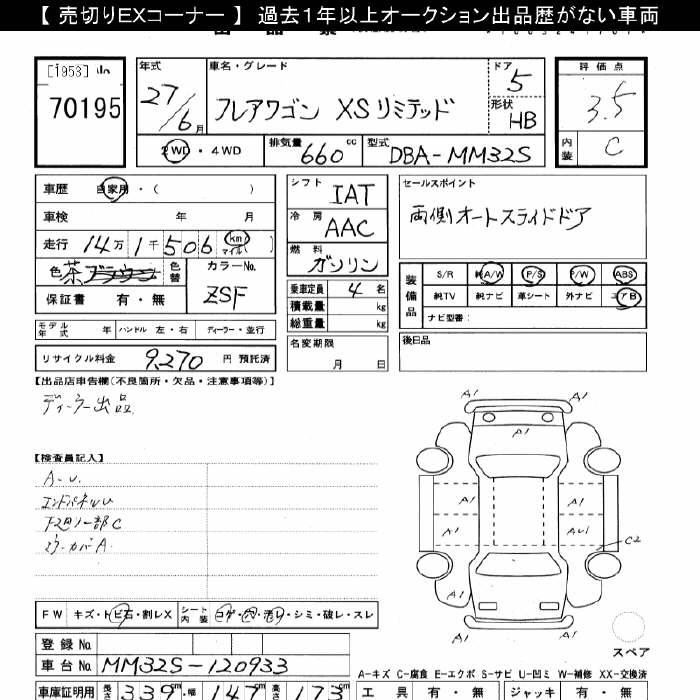 【 売切りEXコーナー 】 過去１年以上オークション出品歴がない車両
[1953]
70195
年式
27/6月
車名・グレード
フレアワゴン XSリミテッド
ドア 5
形状 HB
評価点
3.5
内装 C
2WD・4WD
排気量 660cc
型式 DBA-MM32S
車歴 自家用・( )
車検 年 月
走行 14万1千506 km マイル
色 茶 色替
カラーNo. ZSF
保証書 有・無
モデル年式 年 ハンドル 左・右 ディーラー・並行
リサイクル料金 9,270 円 預託済
シフト IAT
冷房 AAC
燃料 ガソリン
乗車定員 4 名
積載量 kg
総重量 kg
名変期限
月 日
セールスポイント
両側オートスライドドア
装備品
S/R 純A/W P/S P/W ABS
純TV 純ナビ 革シート 外ナビ エアB
ナビ型番:
後日品
【出品店申告欄(不良箇所・欠品・注意事項等)】
ディーラー出品
【検査員記入】
A-U.
エンドパネルU
下回り一部C
ミラーカバーA.
FW キズ・トビ石・割レX
シート内装 コゲ・穴・汚レ・シミ・破レ・スレ
登録 No.
車台 No. MM32S-120933
車庫証明用 長さ 339cm 幅 147cm 高さ 173cm
A1
A1
A1
A1
A1
A1
A1
A1
AU1
C2
A1
A1
スペア
A-キズ C-腐食 E-エクボ S-サビ U-凹ミ W-補修 XX-交換済
工具 有・無 ジャッキ 有・無